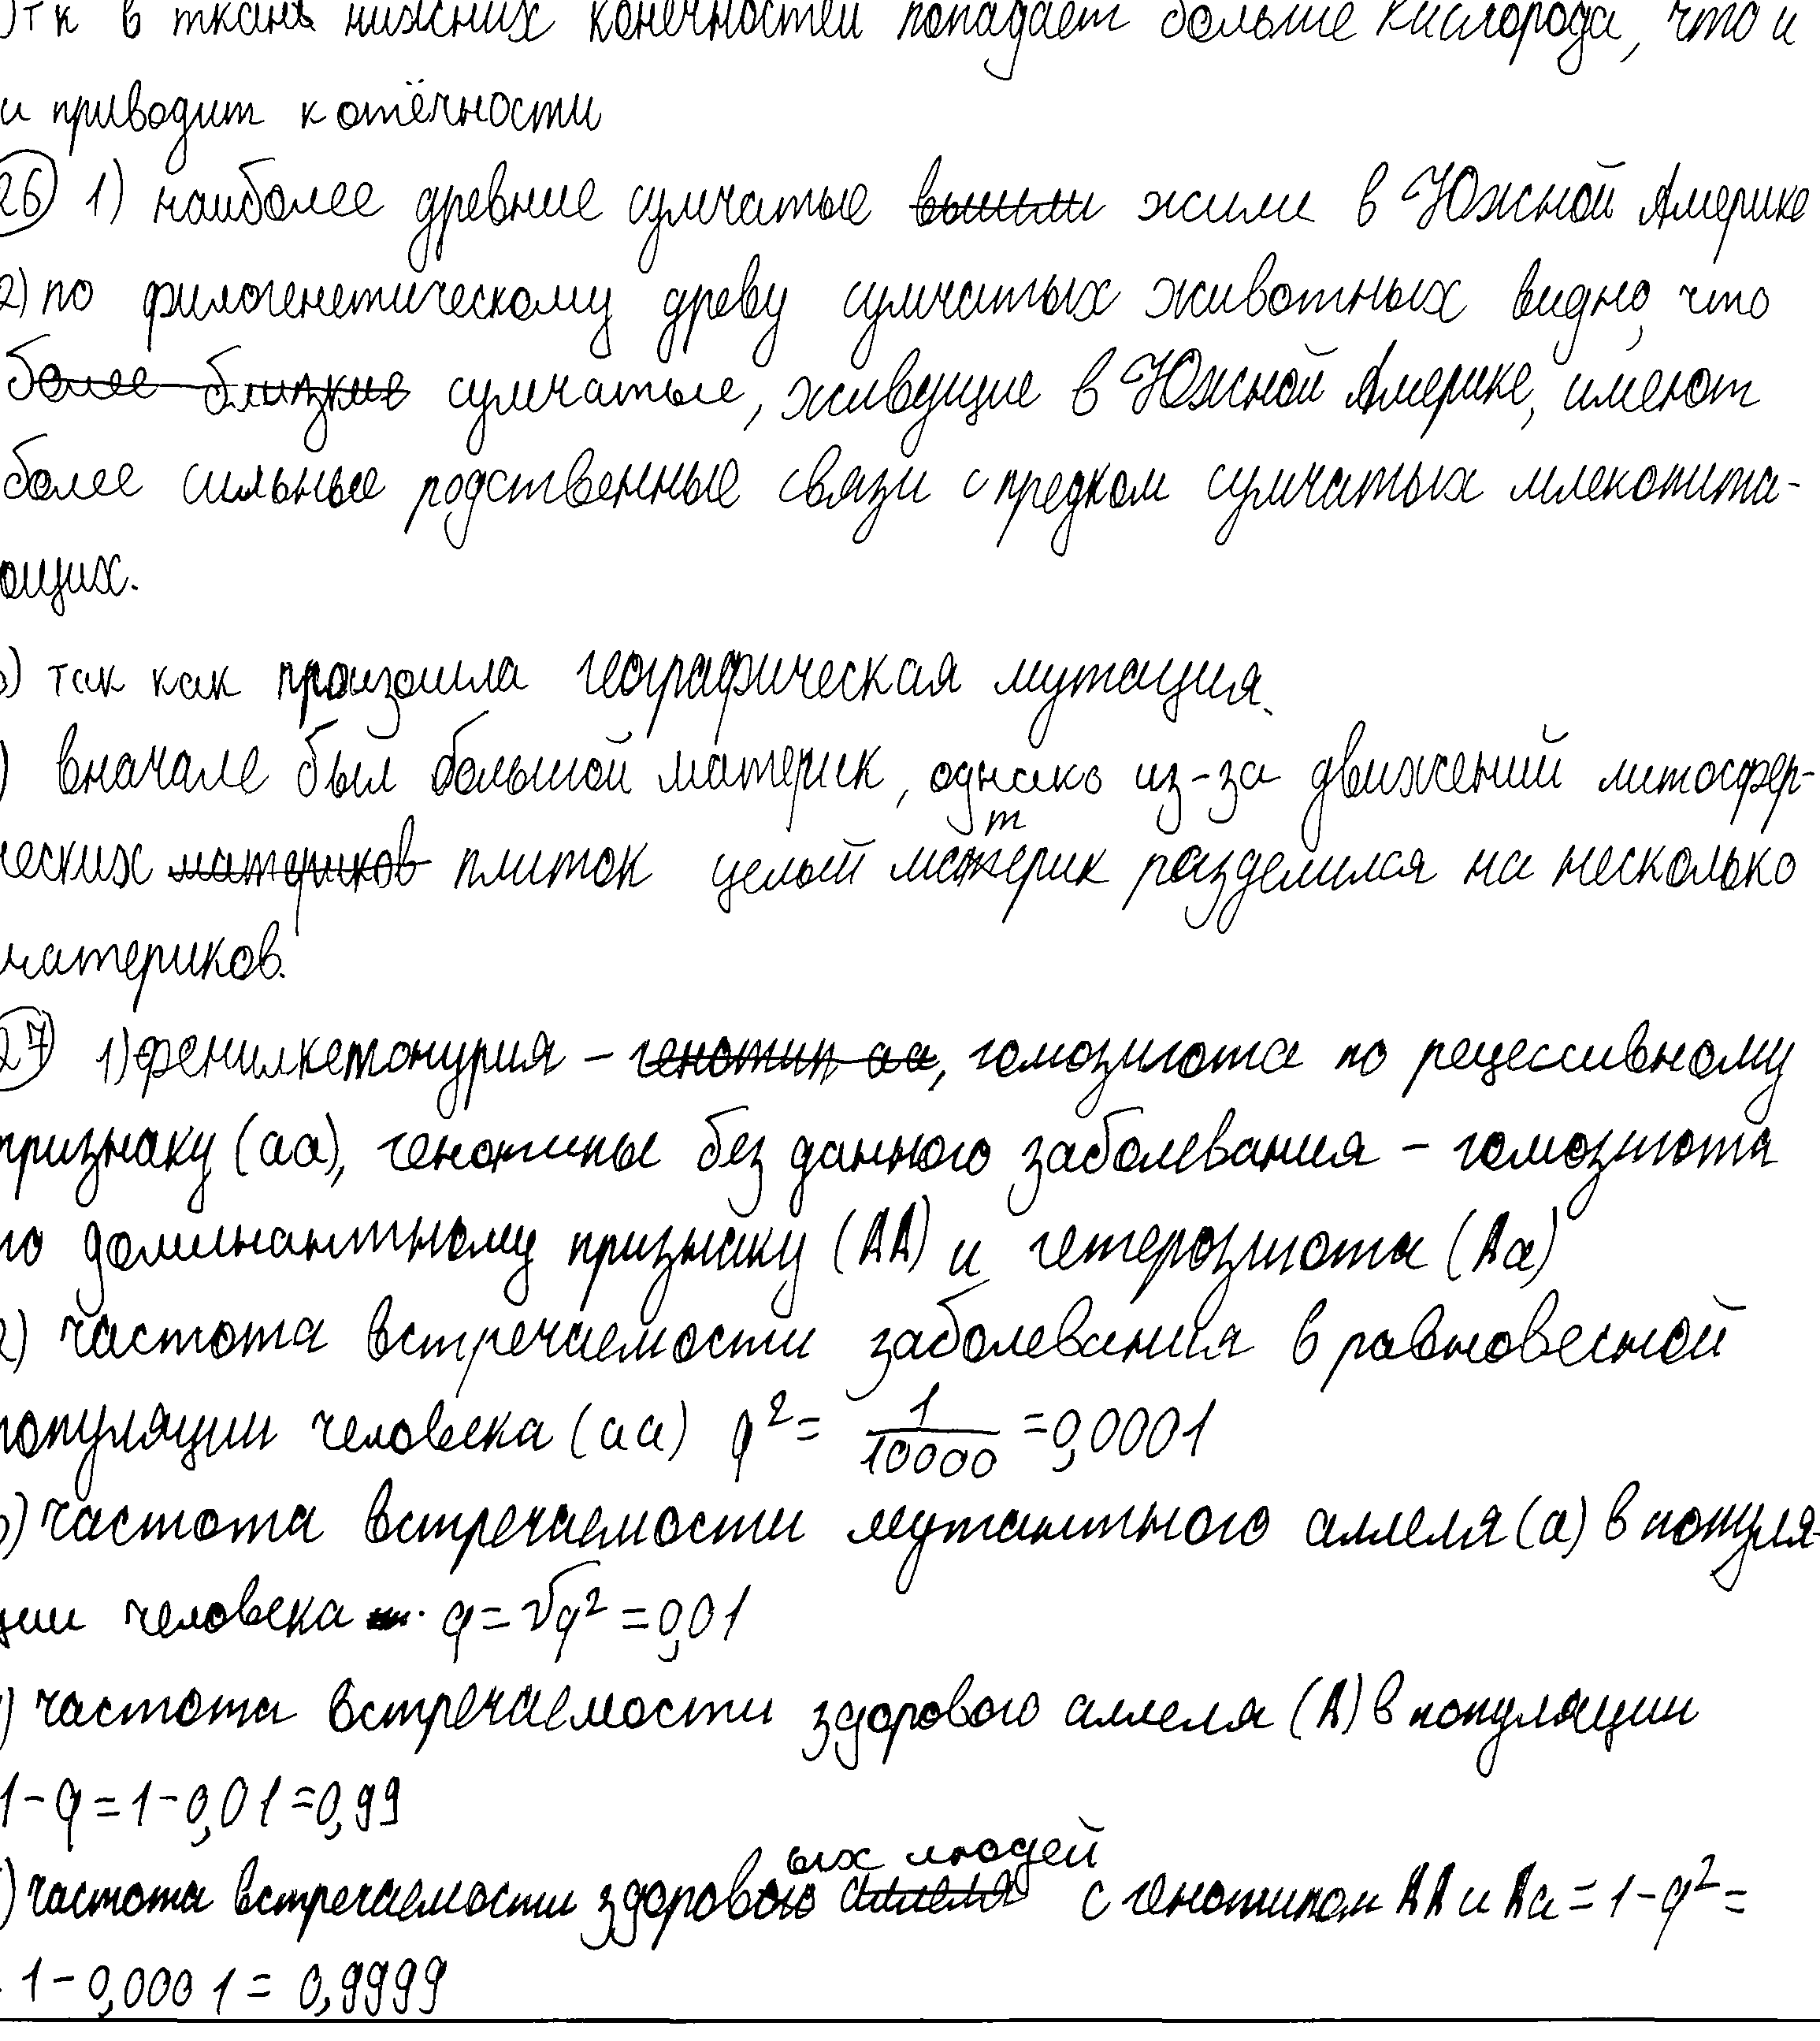 тк в ткани нижних конечностей попадает больше кислорода, что и
и приводит к отёчности
26) 1) наиболее древние сумчатые вышли жили в Южной Америке
2) по филогенетическому древу сумчатых животных видно, что
более близкие сумчатые, живущие в Южной Америке, имеют
более сильные родственные связи с предком сумчатых млекопита-
ющих.
3) так как произошла географическая мутация.
) вначале был большой материк, однако из-за движений литосфер-
ческих материков плиток целый материк разделился на несколько
материков.
27 1) фенилкетонурия – генотип аа, гомозигота по рецессивному
признаку (аа), генотипы без данного заболевания – гомозигота
по доминантному признаку (АА) и гетерозигота (Аа)
2) частота встречаемости заболевания в равновесной
популяции человека (аа) q² = 1/10000 = 0,0001
3) частота встречаемости мутантного аллеля (а) в популя-
ции человека q = √q² = 0,01
) частота встречаемости здорового аллеля (А) в популяции
1 - q = 1 - 0,01 = 0,99
) частота встречаемости здоровых людей аллеля с генотипом АА и Аа = 1 - q² =
1 - 0,0001 = 0,9999